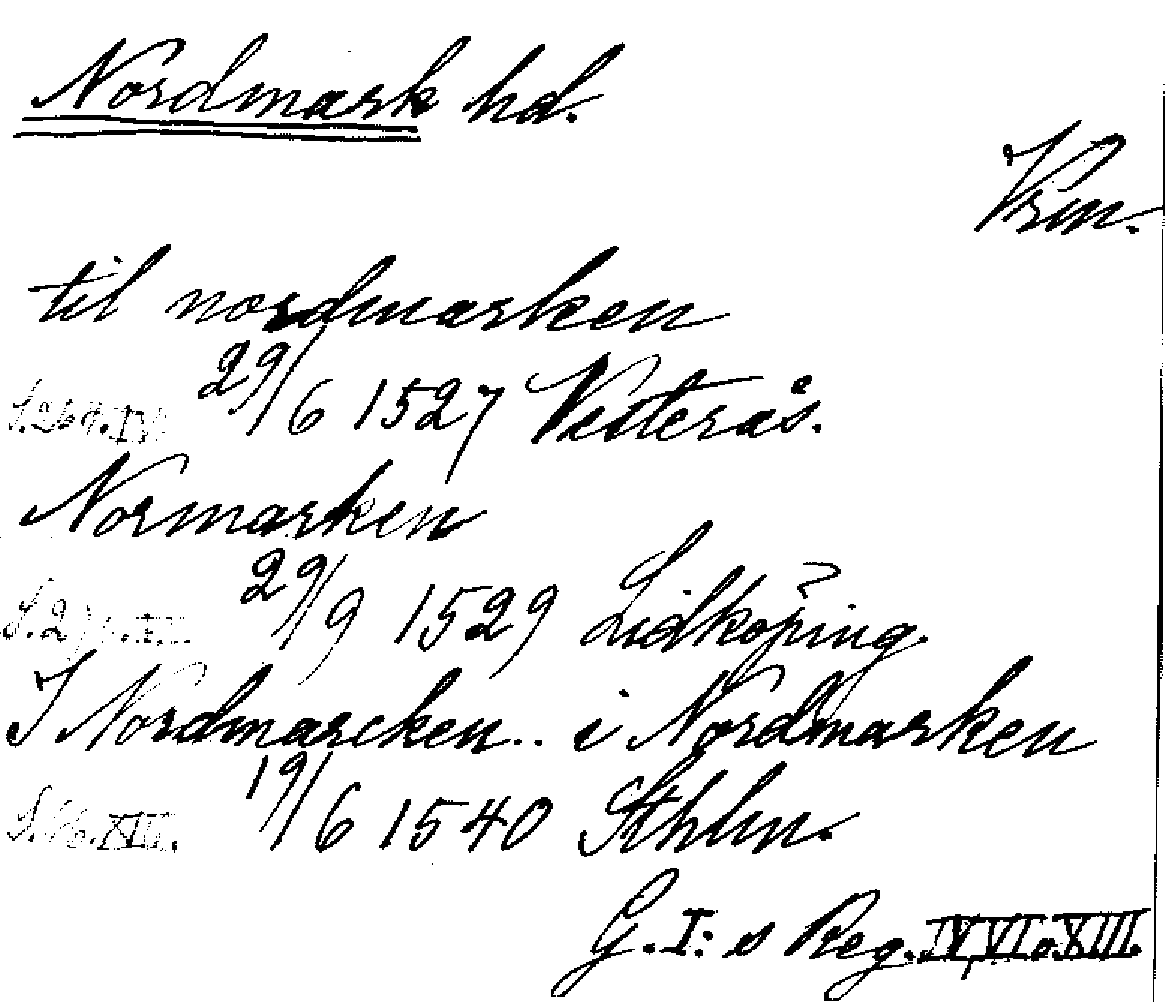 Nordmark hd.
Vrm.
til nordmarken
29/6 1527 Vesterås.
Normarken
29/9 1529 Lidköping.
I Nordmarcken.. i Nordmarken
19/6 1540 Sthlm.
G.I:s Reg. IV, VI o. XIII.